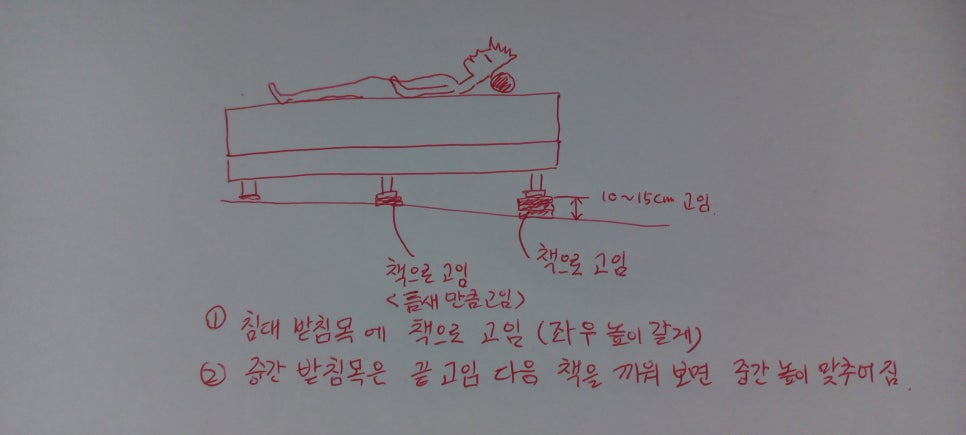 10~15cm 고임.
책으로 고임
책으로 고임
<틈새 만큼고임>
① 침대 받침목에 책으로 고임 (좌우 높이 같게)
② 중간 받침목은 끝 고임 다음 책을 끼워 보면 중간 높이 맞추어 짐.